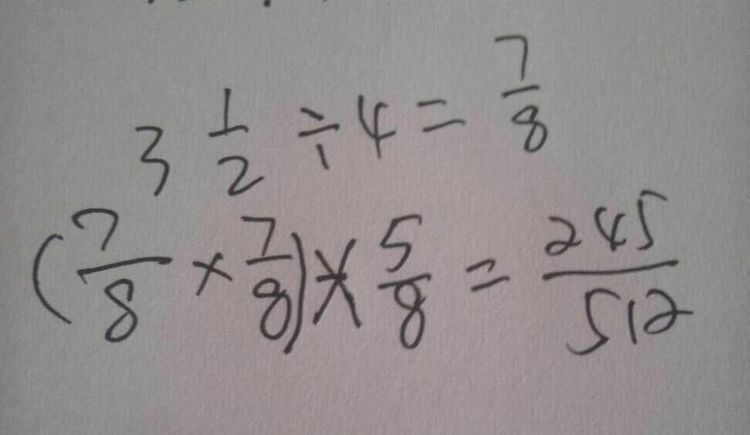 3 1/2 ÷ 4 = 7/8
(7/8 × 7/8) × 5/8 = 245/512